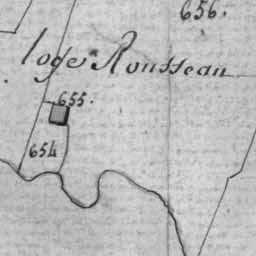 656.
loge Rousseau
655.
654